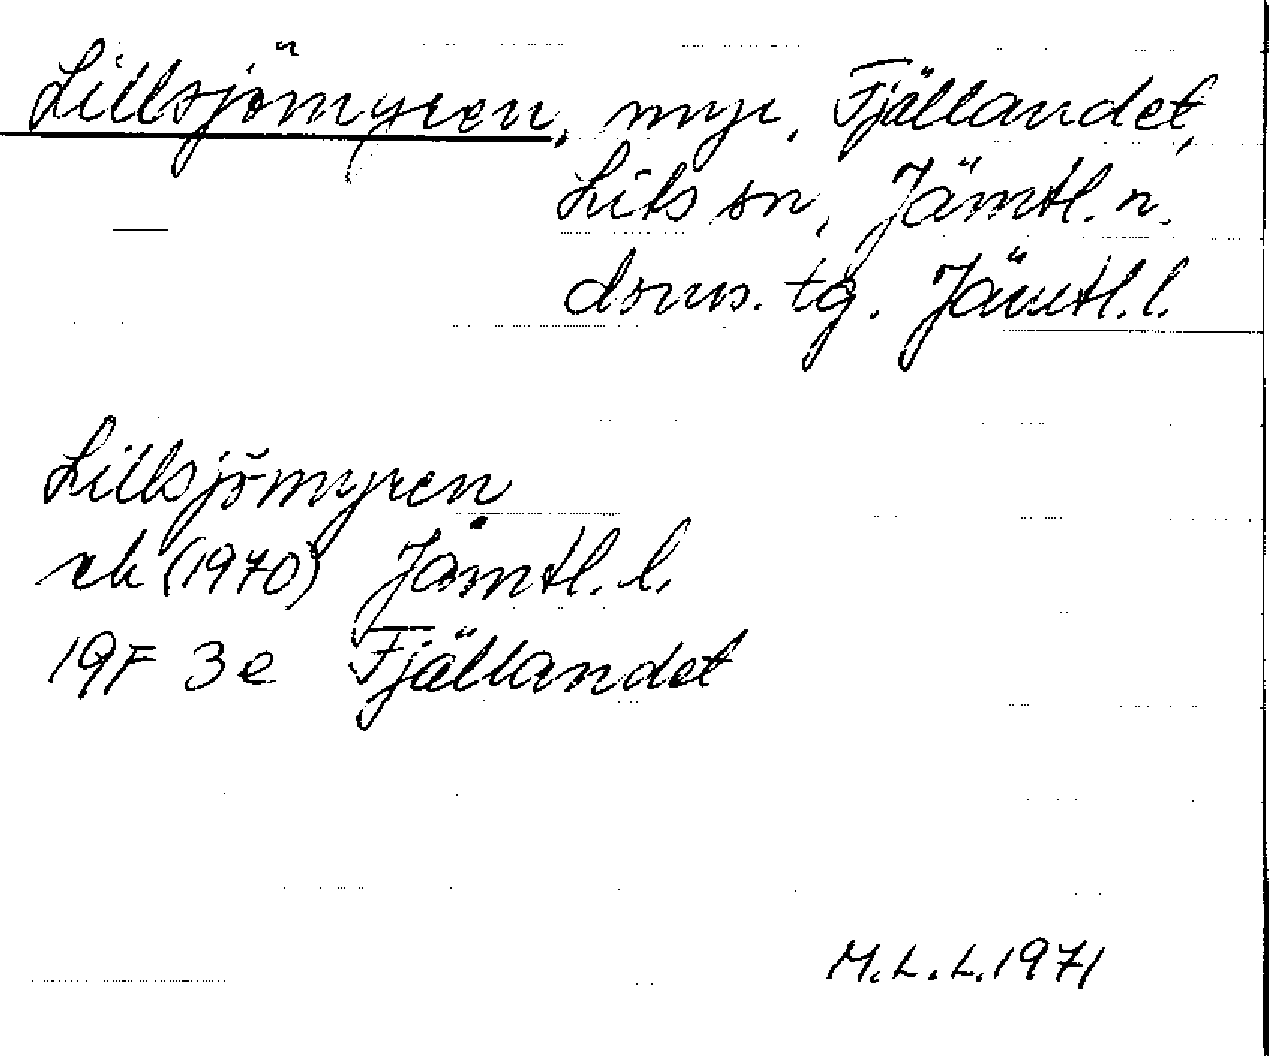 Lillsjömyren, myr, Fjällandet,
Lits sn, Jämtl. n.
doms. tg. Jämtl. l.
Lillsjömyren
rek (1970) Jämtl. l.
19F 3e Fjällandet
M.L.L. 1971